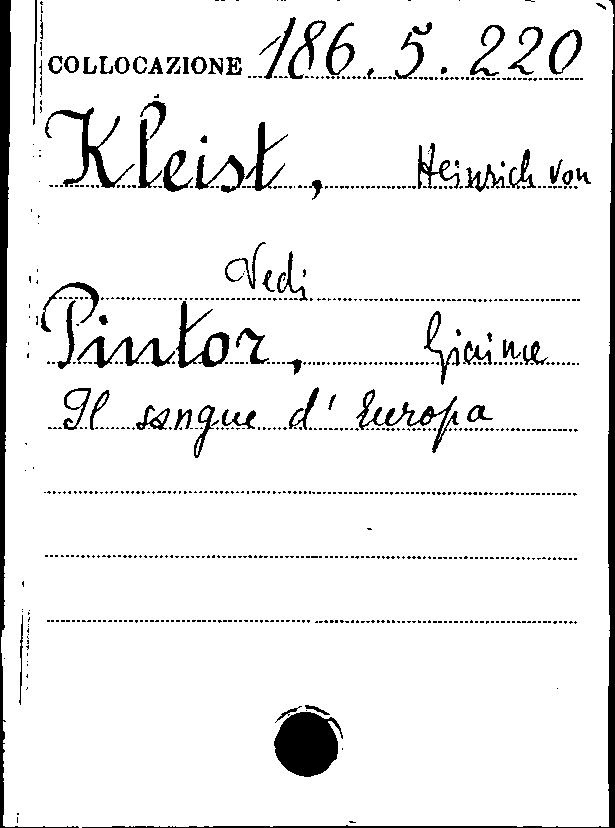 COLLOCAZIONE 186.5.220
Kleist, Heinrich von
Vedi
Pintor, Giaime
Il sangue d'Europa